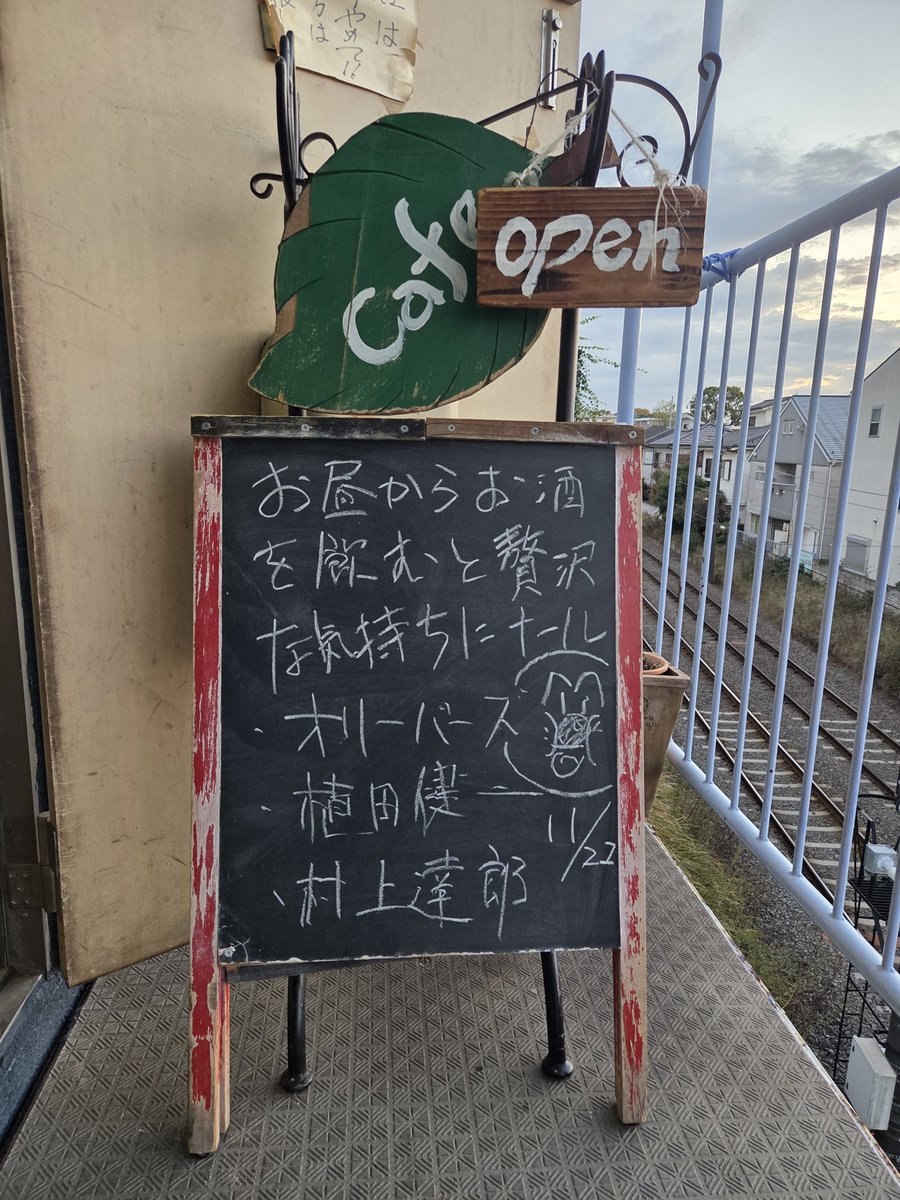 は
やめて!!
方は
Cafe
open
お昼からお酒
を飲むと贅沢
な気持ちにナール
・オリーバーズ
・植田健一
・村上達郎
11/22